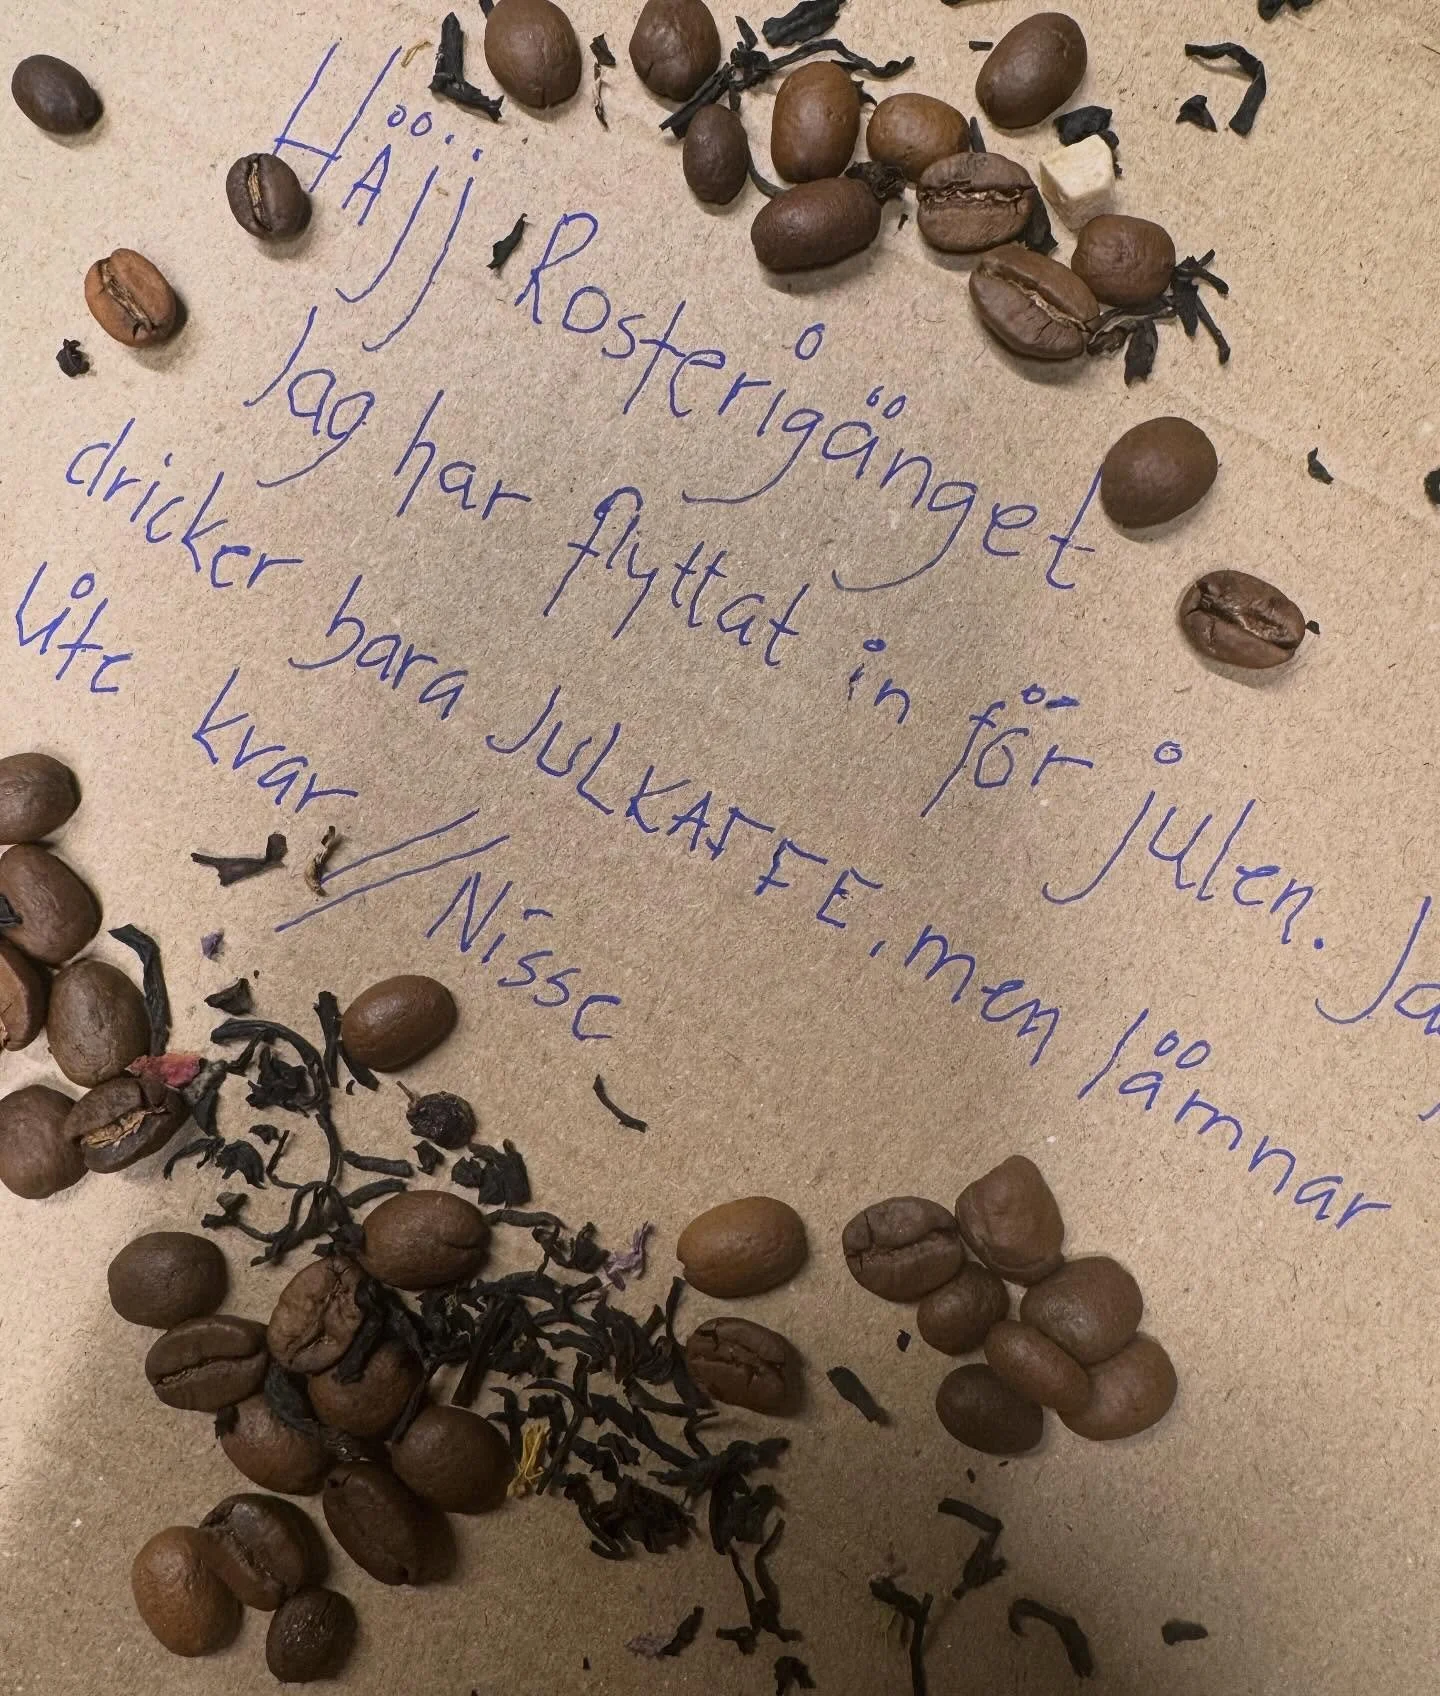 HÄjj Rosterigänget
Jag har flyttat in för julen. Jag
dricker bara JULKAFFE, men lämnar
lite kvar
//Nisse